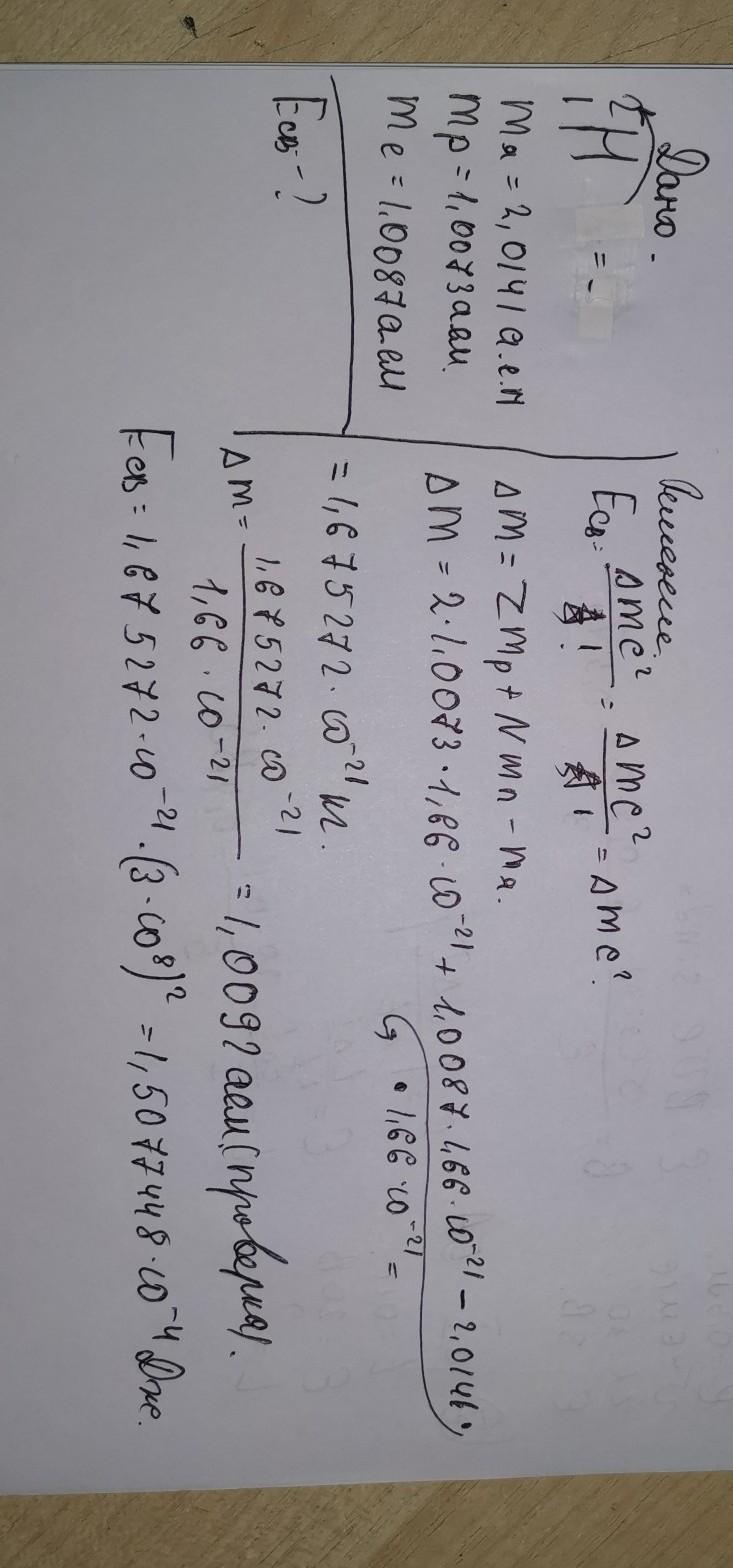 Дано:
²₁H = -
mя = 2,0141 а.е.м
mp = 1,0073 а.е.м.
me = 1,0087 а.е.м
Eсв - ?
Решение.
Eсв = Δmc²/1 = Δmc²/1 = Δmc².
Δm = Zmp + Nmn - mя.
Δm = 2·1,0073·1,66·10⁻²¹ + 1,0087·1,66·10⁻²¹ - 2,0141·
· 1,66·10⁻²¹ =
= 1,675272·10⁻²¹ кг.
Δm = 1,675272·10⁻²¹ / 1,66·10⁻²¹ = 1,0092 а.е.м. (проверка).
Eсв = 1,675272·10⁻²¹·(3·10⁸)² = 1,5077448·10⁻⁴ Дж.